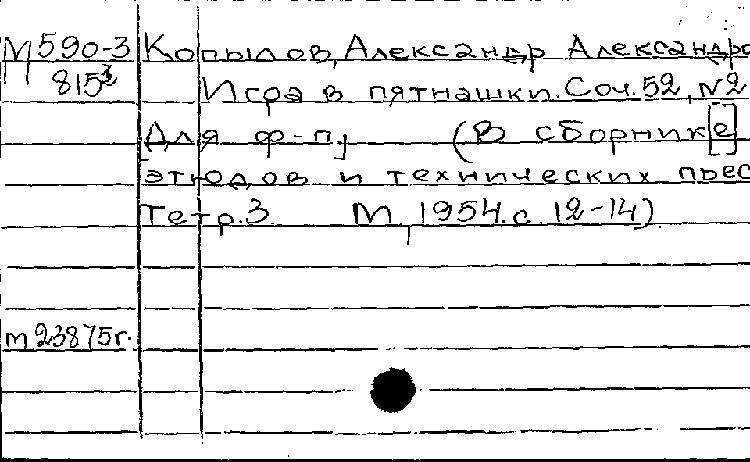 М 590-3 Копылов, Александр Александро
815² Игра в пятнашки. Соч. 52, №2
[Для ф-п.] (В сборник[е]
этюдов и технических пьес
Тетр. 3 М, 1954. с. 12-14)
т 23875г.